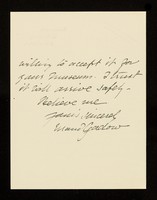 willing to accept it for
your museum. I trust
it will arrive safely.
Believe me
yours sincerely